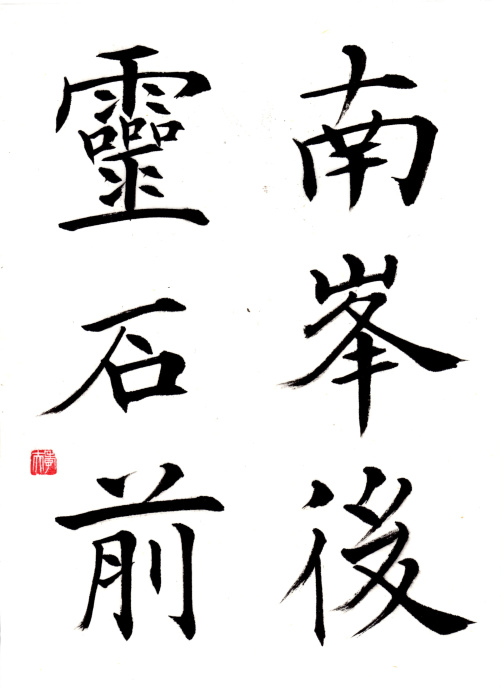 南峯後
靈石前